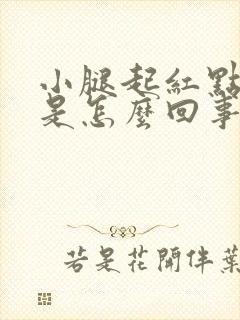 小腿起紅點
是怎麼回事
若是花開伴葉